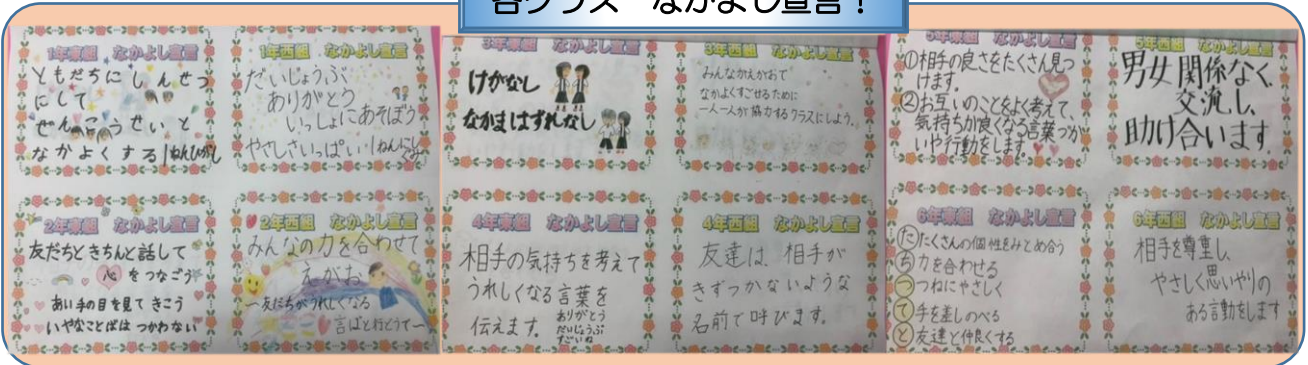 各クラス なかよし宣言!
1年東組 なかよし宣言
ともだちに しんせつ
にして
ぜんこうせい と
なかよくする 1ねんひがし
1年西組 なかよし宣言
だいじょうぶ
ありがとう
いっしょにあそぼう
やさしさいっぱい 1ねんにしぐみ
2年東組 なかよし宣言
友だちときちんと話して
心 をつなごう
あい手の目を見て きこう
いやなことばは つかわない
2年西組 なかよし宣言
みんなの力を合わせて
えがお
〜友だちがうれしくなる
言ばと行どうで〜
3年東組 なかよし宣言
けがなし
なかまはずれなし
3年西組 なかよし宣言
みんながえがおで
なかよくすごせるために
一人一人が協力するクラスにしよう。
4年東組 なかよし宣言
相手の気持ちを考えて
うれしくなる言葉を
伝えます。
ありがとう
だいじょうぶ
すごいね
4年西組 なかよし宣言
友達は 相手が
きずつかないような
名前で呼びます。
5年東組 なかよし宣言
①相手の良さをたくさん見つ
けます。
②お互いのことをよく考えて、
気持ちが良くなる言葉づか
いや行動をします。
5年西組 なかよし宣言
男女関係なく、
交流し、
助け合います。
6年東組 なかよし宣言
たたくさんの個性をみとめ合う
ち力を合わせる
つつねにやさしく
て手を差しのべる
と友達と仲良くする
6年西組 なかよし宣言
相手を尊重し、
やさしく思いやりの
ある言動をします